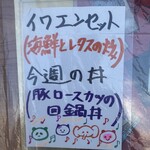 イワエンセット
(海鮮とレタスの丼)
今週の丼
(豚ロースカツの
回鍋丼)